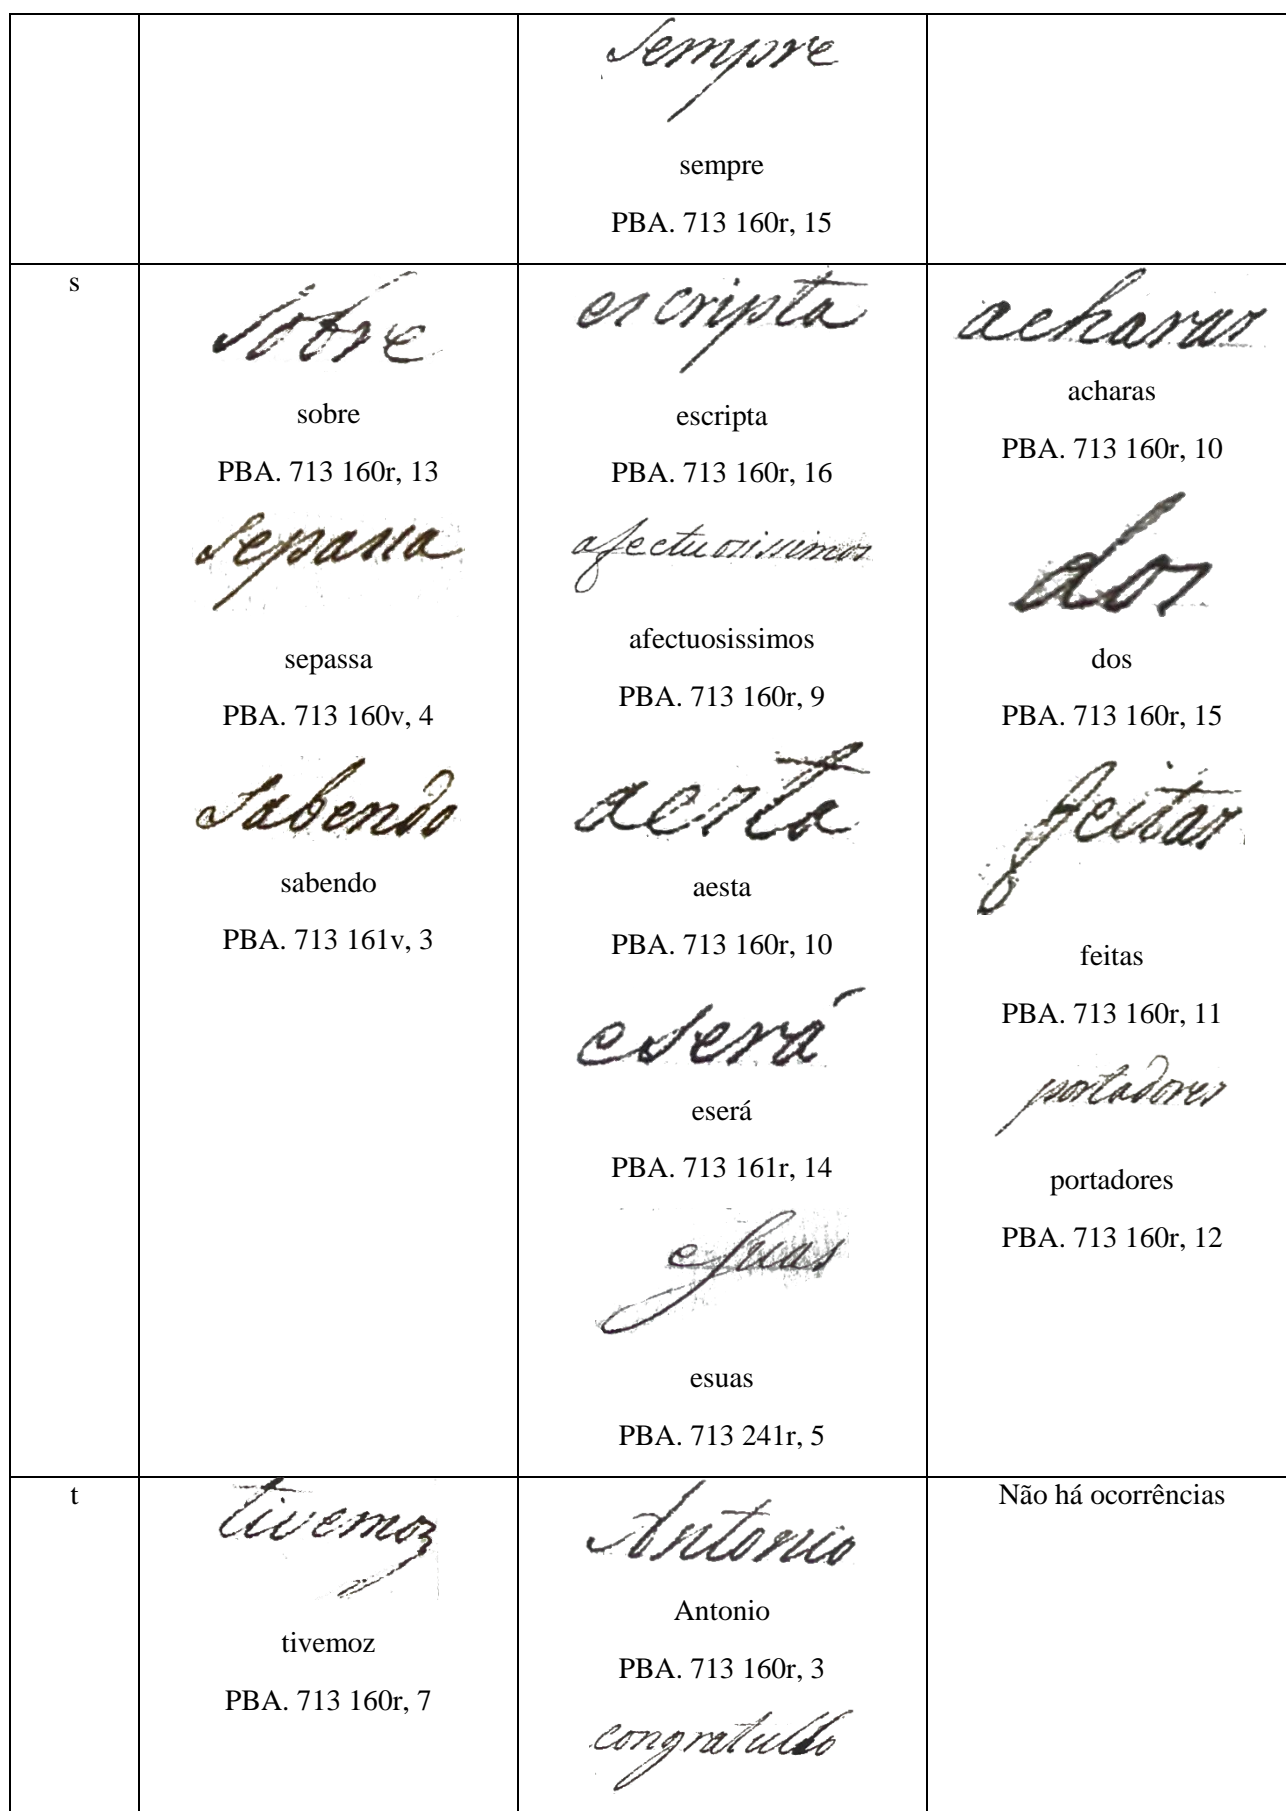 sempre
sempre
PBA. 713 160r, 15
s
sobre
sobre
PBA. 713 160r, 13
sepassa
sepassa
PBA. 713 160v, 4
sabendo
sabendo
PBA. 713 161v, 3
escripta
escripta
PBA. 713 160r, 16
afectuosissimos
afectuosissimos
PBA. 713 160r, 9
aesta
aesta
PBA. 713 160r, 10
eserá
eserá
PBA. 713 161r, 14
esuas
esuas
PBA. 713 241r, 5
acharas
acharas
PBA. 713 160r, 10
dos
dos
PBA. 713 160r, 15
feitas
feitas
PBA. 713 160r, 11
portadores
portadores
PBA. 713 160r, 12
t
tivemoz
tivemoz
PBA. 713 160r, 7
Antonio
Antonio
PBA. 713 160r, 3
congratullo
Não há ocorrências